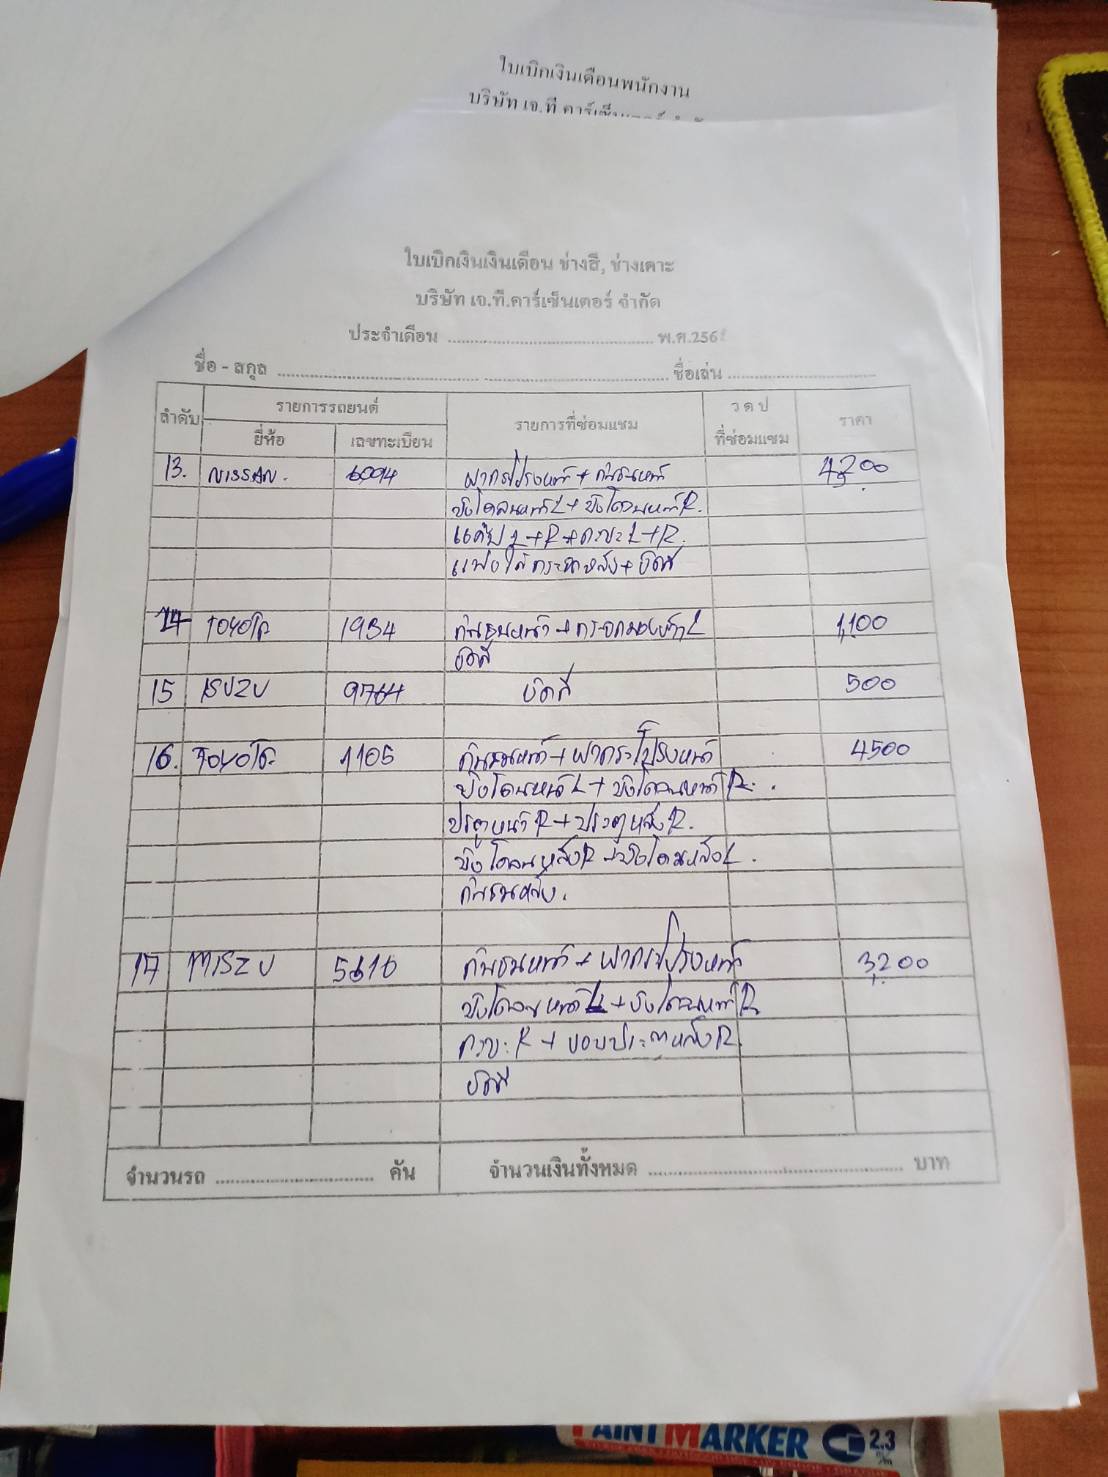 ใบเบิกเงินเดือนพนักงาน
บริษัท เจ.ที คาร์เซ็นเตอร์
ใบเบิกเงินเงินเดือน ช่างสี, ช่างเคาะ
บริษัท เจ.ที.คาร์เซ็นเตอร์ จำกัด
ประจำเดือน ............ พ.ศ.256
ชื่อ - สกุล ............ ชื่อเล่น ............
ลำดับ รายการรถยนต์ รายการที่ซ่อมแซม ว ด ป ที่ซ่อมแซม ราคา
ยี่ห้อ เลขทะเบียน
13. NISSAN. 6094 ฝากระโปรงหน้า + กันชนหน้า 4200
บังโคลนหน้า L + บังโคลนหน้า R.
แค้ป L + R + กระบะ L + R.
ขัดสี
14 โตโยโต 1934 กันชนหน้า + กระจกมองข้าง L 1,100
ขัดสี
15 ISUZU 9764 ขัดสี 500
16. โตโยโต 1105 กันชนหน้า + ฝากระโปรงหน้า 4500
บังโคลนหน้า L + บังโคลนหน้า R.
ประตูหน้า R + ประตูหลัง R.
บังโคลนหลัง R + บังโคลนหลัง L.
กันชนหลัง.
17 MISZU กันชนหน้า + ฝากระโปรงหน้า 3,200
บังโคลนหน้า L + บังโคลนหน้า R
กระบะ R + ขอบประตูหลัง R.
ขัดสี
จำนวนรถ ............ คัน จำนวนเงินทั้งหมด ............ บาท
PAINT MARKER 2.3